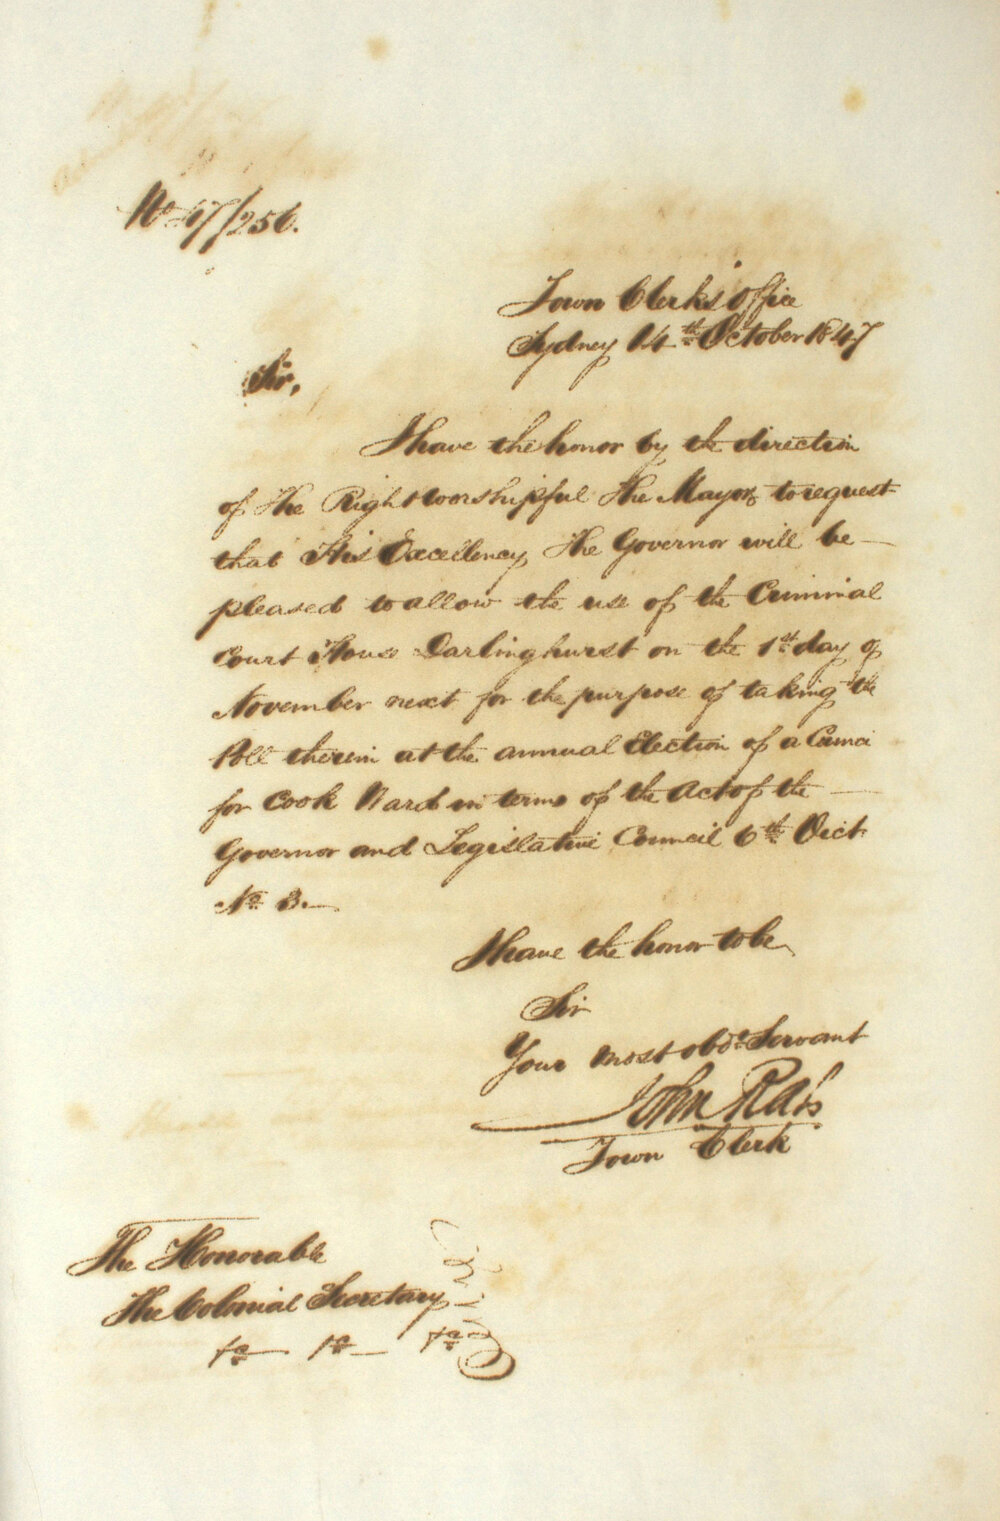 No 47/256.
Town Clerk's Office
Sydney 14th October 1847
Sir,
I have the honor by the direction
of The Right Worshipful The Mayor to request
that His Excellency The Governor will be —
pleased to allow the use of the Criminal
Court House Darlinghurst on the 1st day of
November next for the purpose of taking the
Poll therein at the annual Election of a
for Cook Ward in terms of the Act of the —
Governor and Legislative Council 6th Vict
No 3. —
I have the honor to be
Sir
Your most obdt Servant
John
Town Clerk
The Honorable
The Colonial Secretary